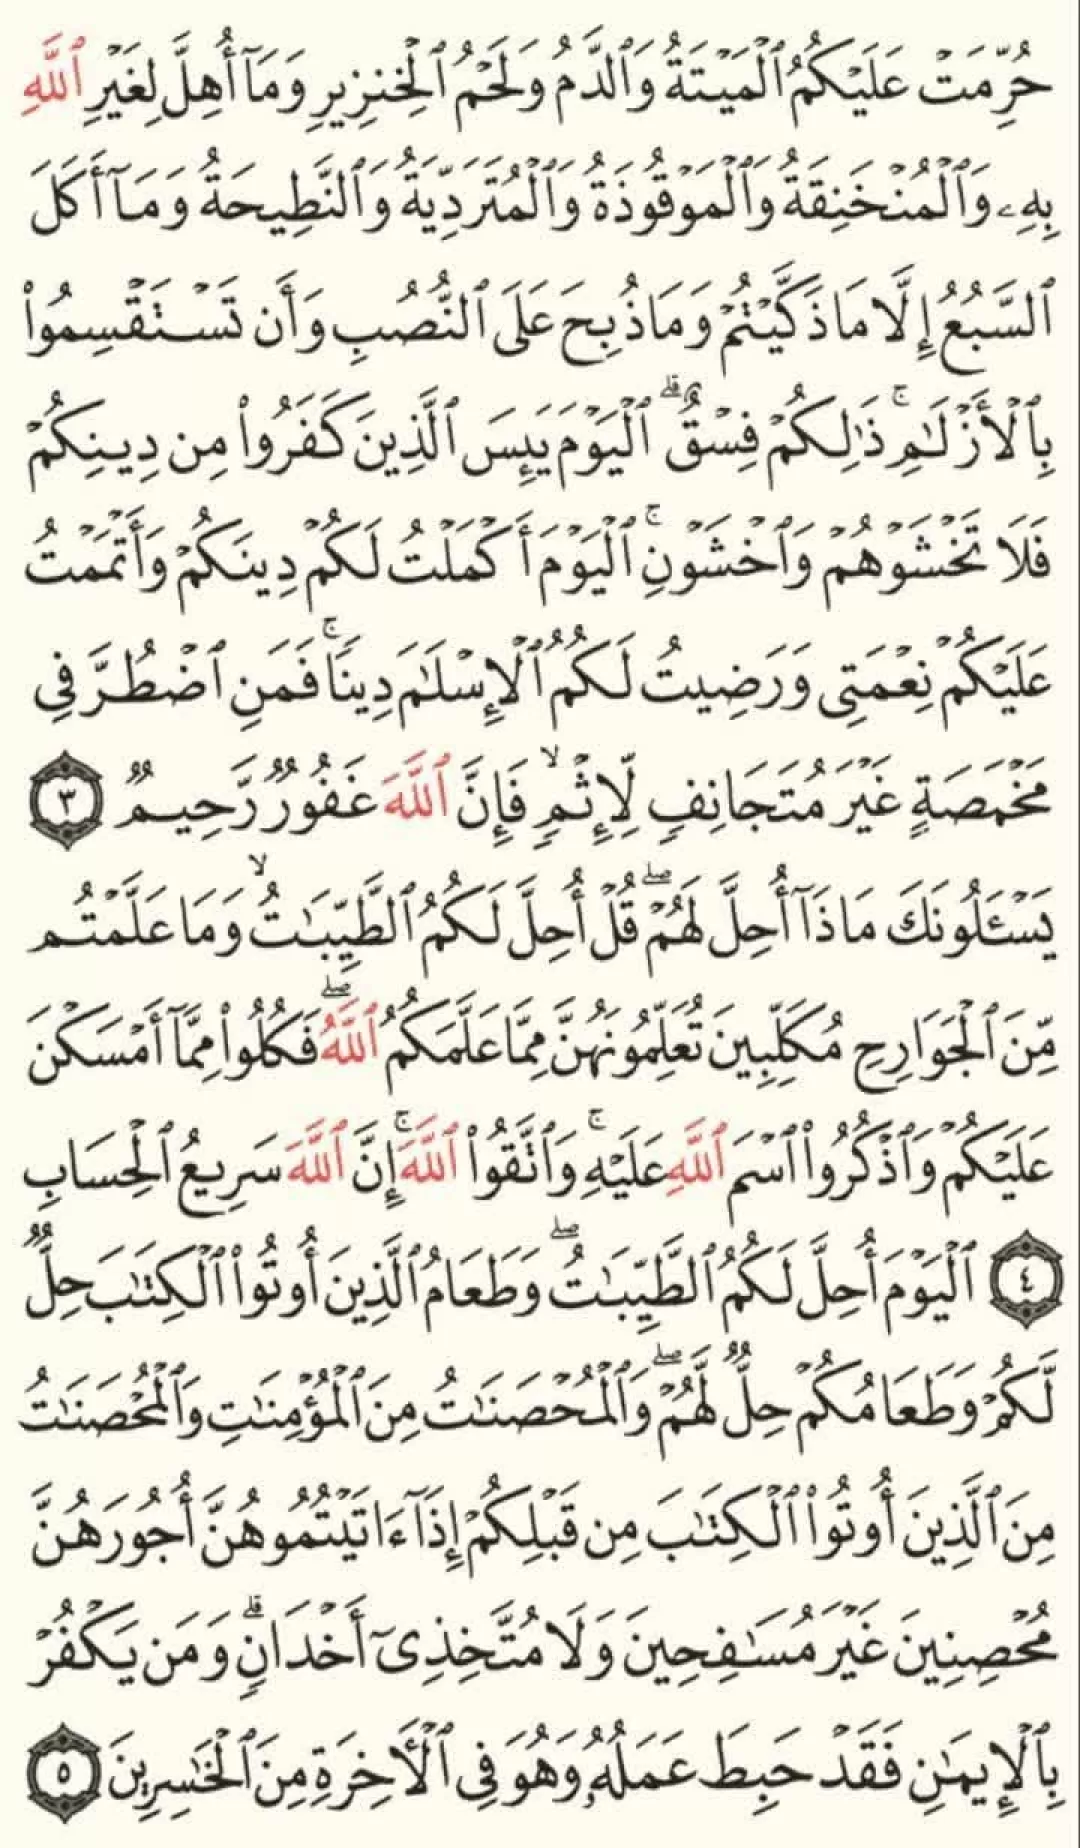 حُرِّمَتْ عَلَيْكُمُ ٱلْمَيْتَةُ وَٱلدَّمُ وَلَحْمُ ٱلْخِنزِيرِ وَمَآ أُهِلَّ لِغَيْرِ ٱللَّهِ
بِهِۦ وَٱلْمُنْخَنِقَةُ وَٱلْمَوْقُوذَةُ وَٱلْمُتَرَدِّيَةُ وَٱلنَّطِيحَةُ وَمَآ أَكَلَ
ٱلسَّبُعُ إِلَّا مَا ذَكَّيْتُمْ وَمَا ذُبِحَ عَلَى ٱلنُّصُبِ وَأَن تَسْتَقْسِمُوا۟
بِٱلْأَزْلَٰمِ ۚ ذَٰلِكُمْ فِسْقٌ ۗ ٱلْيَوْمَ يَئِسَ ٱلَّذِينَ كَفَرُوا۟ مِن دِينِكُمْ
فَلَا تَخْشَوْهُمْ وَٱخْشَوْنِ ۚ ٱلْيَوْمَ أَكْمَلْتُ لَكُمْ دِينَكُمْ وَأَتْمَمْتُ
عَلَيْكُمْ نِعْمَتِى وَرَضِيتُ لَكُمُ ٱلْإِسْلَٰمَ دِينًا ۚ فَمَنِ ٱضْطُرَّ فِى
مَخْمَصَةٍ غَيْرَ مُتَجَانِفٍ لِّإِثْمٍ ۙ فَإِنَّ ٱللَّهَ غَفُورٌ رَّحِيمٌ ٣
يَسْـَٔلُونَكَ مَاذَآ أُحِلَّ لَهُمْ ۖ قُلْ أُحِلَّ لَكُمُ ٱلطَّيِّبَٰتُ ۙ وَمَا عَلَّمْتُم
مِّنَ ٱلْجَوَارِحِ مُكَلِّبِينَ تُعَلِّمُونَهُنَّ مِمَّا عَلَّمَكُمُ ٱللَّهُ ۖ فَكُلُوا۟ مِمَّآ أَمْسَكْنَ
عَلَيْكُمْ وَٱذْكُرُوا۟ ٱسْمَ ٱللَّهِ عَلَيْهِ ۚ وَٱتَّقُوا۟ ٱللَّهَ ۚ إِنَّ ٱللَّهَ سَرِيعُ ٱلْحِسَابِ
٤ ٱلْيَوْمَ أُحِلَّ لَكُمُ ٱلطَّيِّبَٰتُ ۖ وَطَعَامُ ٱلَّذِينَ أُوتُوا۟ ٱلْكِتَٰبَ حِلٌّ
لَّكُمْ وَطَعَامُكُمْ حِلٌّ لَّهُمْ ۖ وَٱلْمُحْصَنَٰتُ مِنَ ٱلْمُؤْمِنَٰتِ وَٱلْمُحْصَنَٰتُ
مِنَ ٱلَّذِينَ أُوتُوا۟ ٱلْكِتَٰبَ مِن قَبْلِكُمْ إِذَآ ءَاتَيْتُمُوهُنَّ أُجُورَهُنَّ
مُحْصِنِينَ غَيْرَ مُسَٰفِحِينَ وَلَا مُتَّخِذِىٓ أَخْدَانٍ ۗ وَمَن يَكْفُرْ
بِٱلْإِيمَٰنِ فَقَدْ حَبِطَ عَمَلُهُۥ وَهُوَ فِى ٱلْءَاخِرَةِ مِنَ ٱلْخَٰسِرِينَ ٥